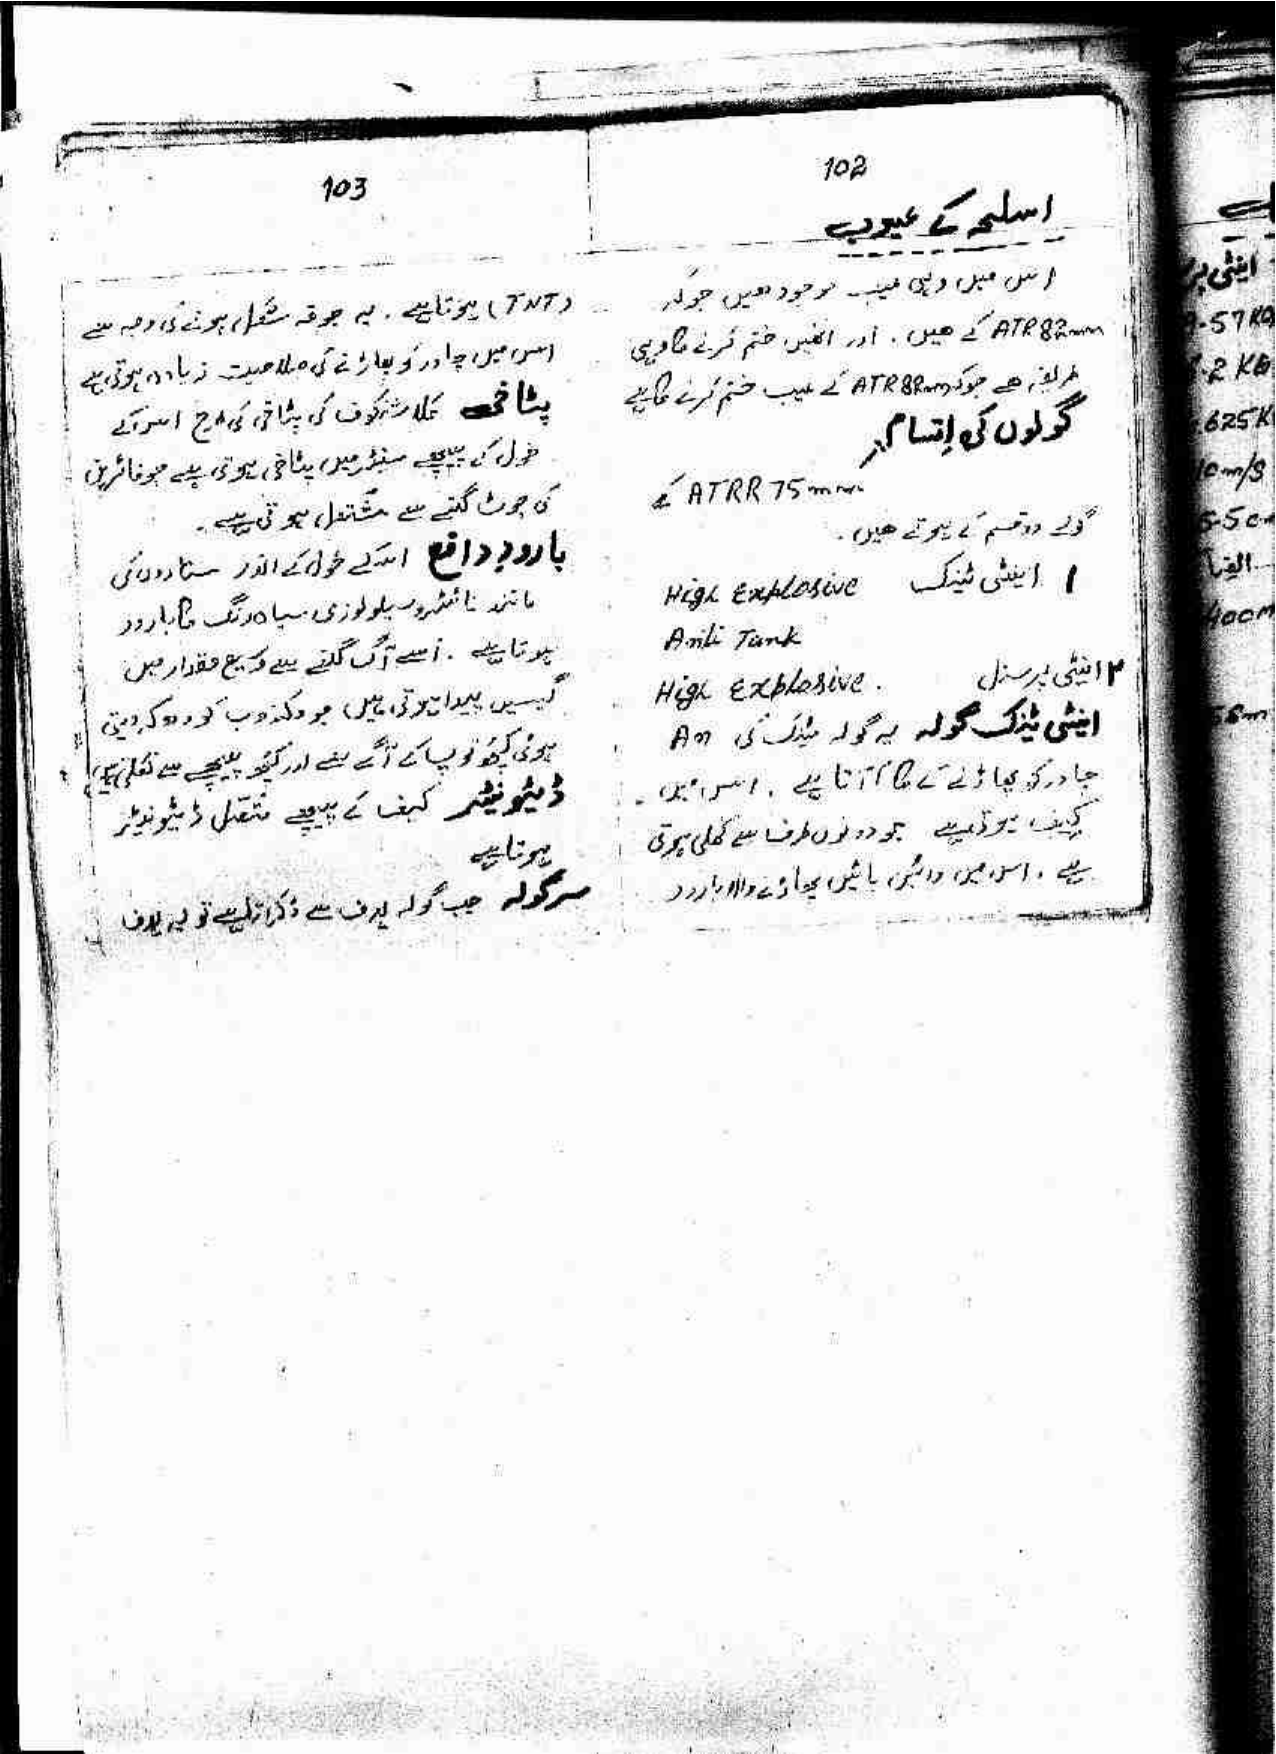 102
اسلحہ کے عیوب
اس میں وہی عیب موجود ہیں جو کہ
ATR 82mm کے ھیں. اور انھیں ختم کرنے کا وہی
طریقہ ھے جو کہ ATR 82mm کے عیب ختم کرنے کا ہے
گولوں کی اقسام
ATRR 75mm کے
گولے دو قسم کے ہوتے ھیں.
۱ اینٹی ٹینک High Explosive
Anti Tank
۲ اینٹی پرسنل High Explosive.
اینٹی ٹینک گولہ یہ گولہ ٹینک کی An
چادر کو پھاڑنے کے کام آتا ہے. اس میں
کہف ہوتی ہے جو دونوں طرف سے کھلی ہوتی
ہے. اس میں دائیں بائیں پھاڑنے والا بارود
103
(TNT) ہوتا ہے. یہ جوفہ شکل ہونے کی وجہ سے
اس میں چادر کو پھاڑنے کی صلاحیت زیادہ ہوتی ہے
پٹاخی کلاشنکوف کی پٹاخی کی طرح اس کے
خول کے پیچھے سینٹر میں پٹاخی ہوتی ہے جو فائرنگ پن
کی چوٹ لگنے سے مشتعل ہوتی ہے.
بارود دافع اس کے خول کے اندر ستاروں کی
مانند نائٹرو سیلولوزی سیاہ رنگ کا بارود
ہوتا ہے. اسے آگ لگنے سے وسیع مقدار میں
گیسیں پیدا ہوتی ہیں جو کو دھکیلتی
ہوئی کچھ توپ کے آگے سے اور کچھ پیچھے سے نکلتی ہیں
ڈیٹونیٹر کہف کے پیچھے منتقل ڈیٹونیٹر
ہوتا ہے
سر گولہ جب گولہ ہدف سے ٹکراتا ہے تو یہ ہدف
اینٹی پر
9.57 KG
.2 KG
.625 K
10 m/s
5.5 c
الف
400 m